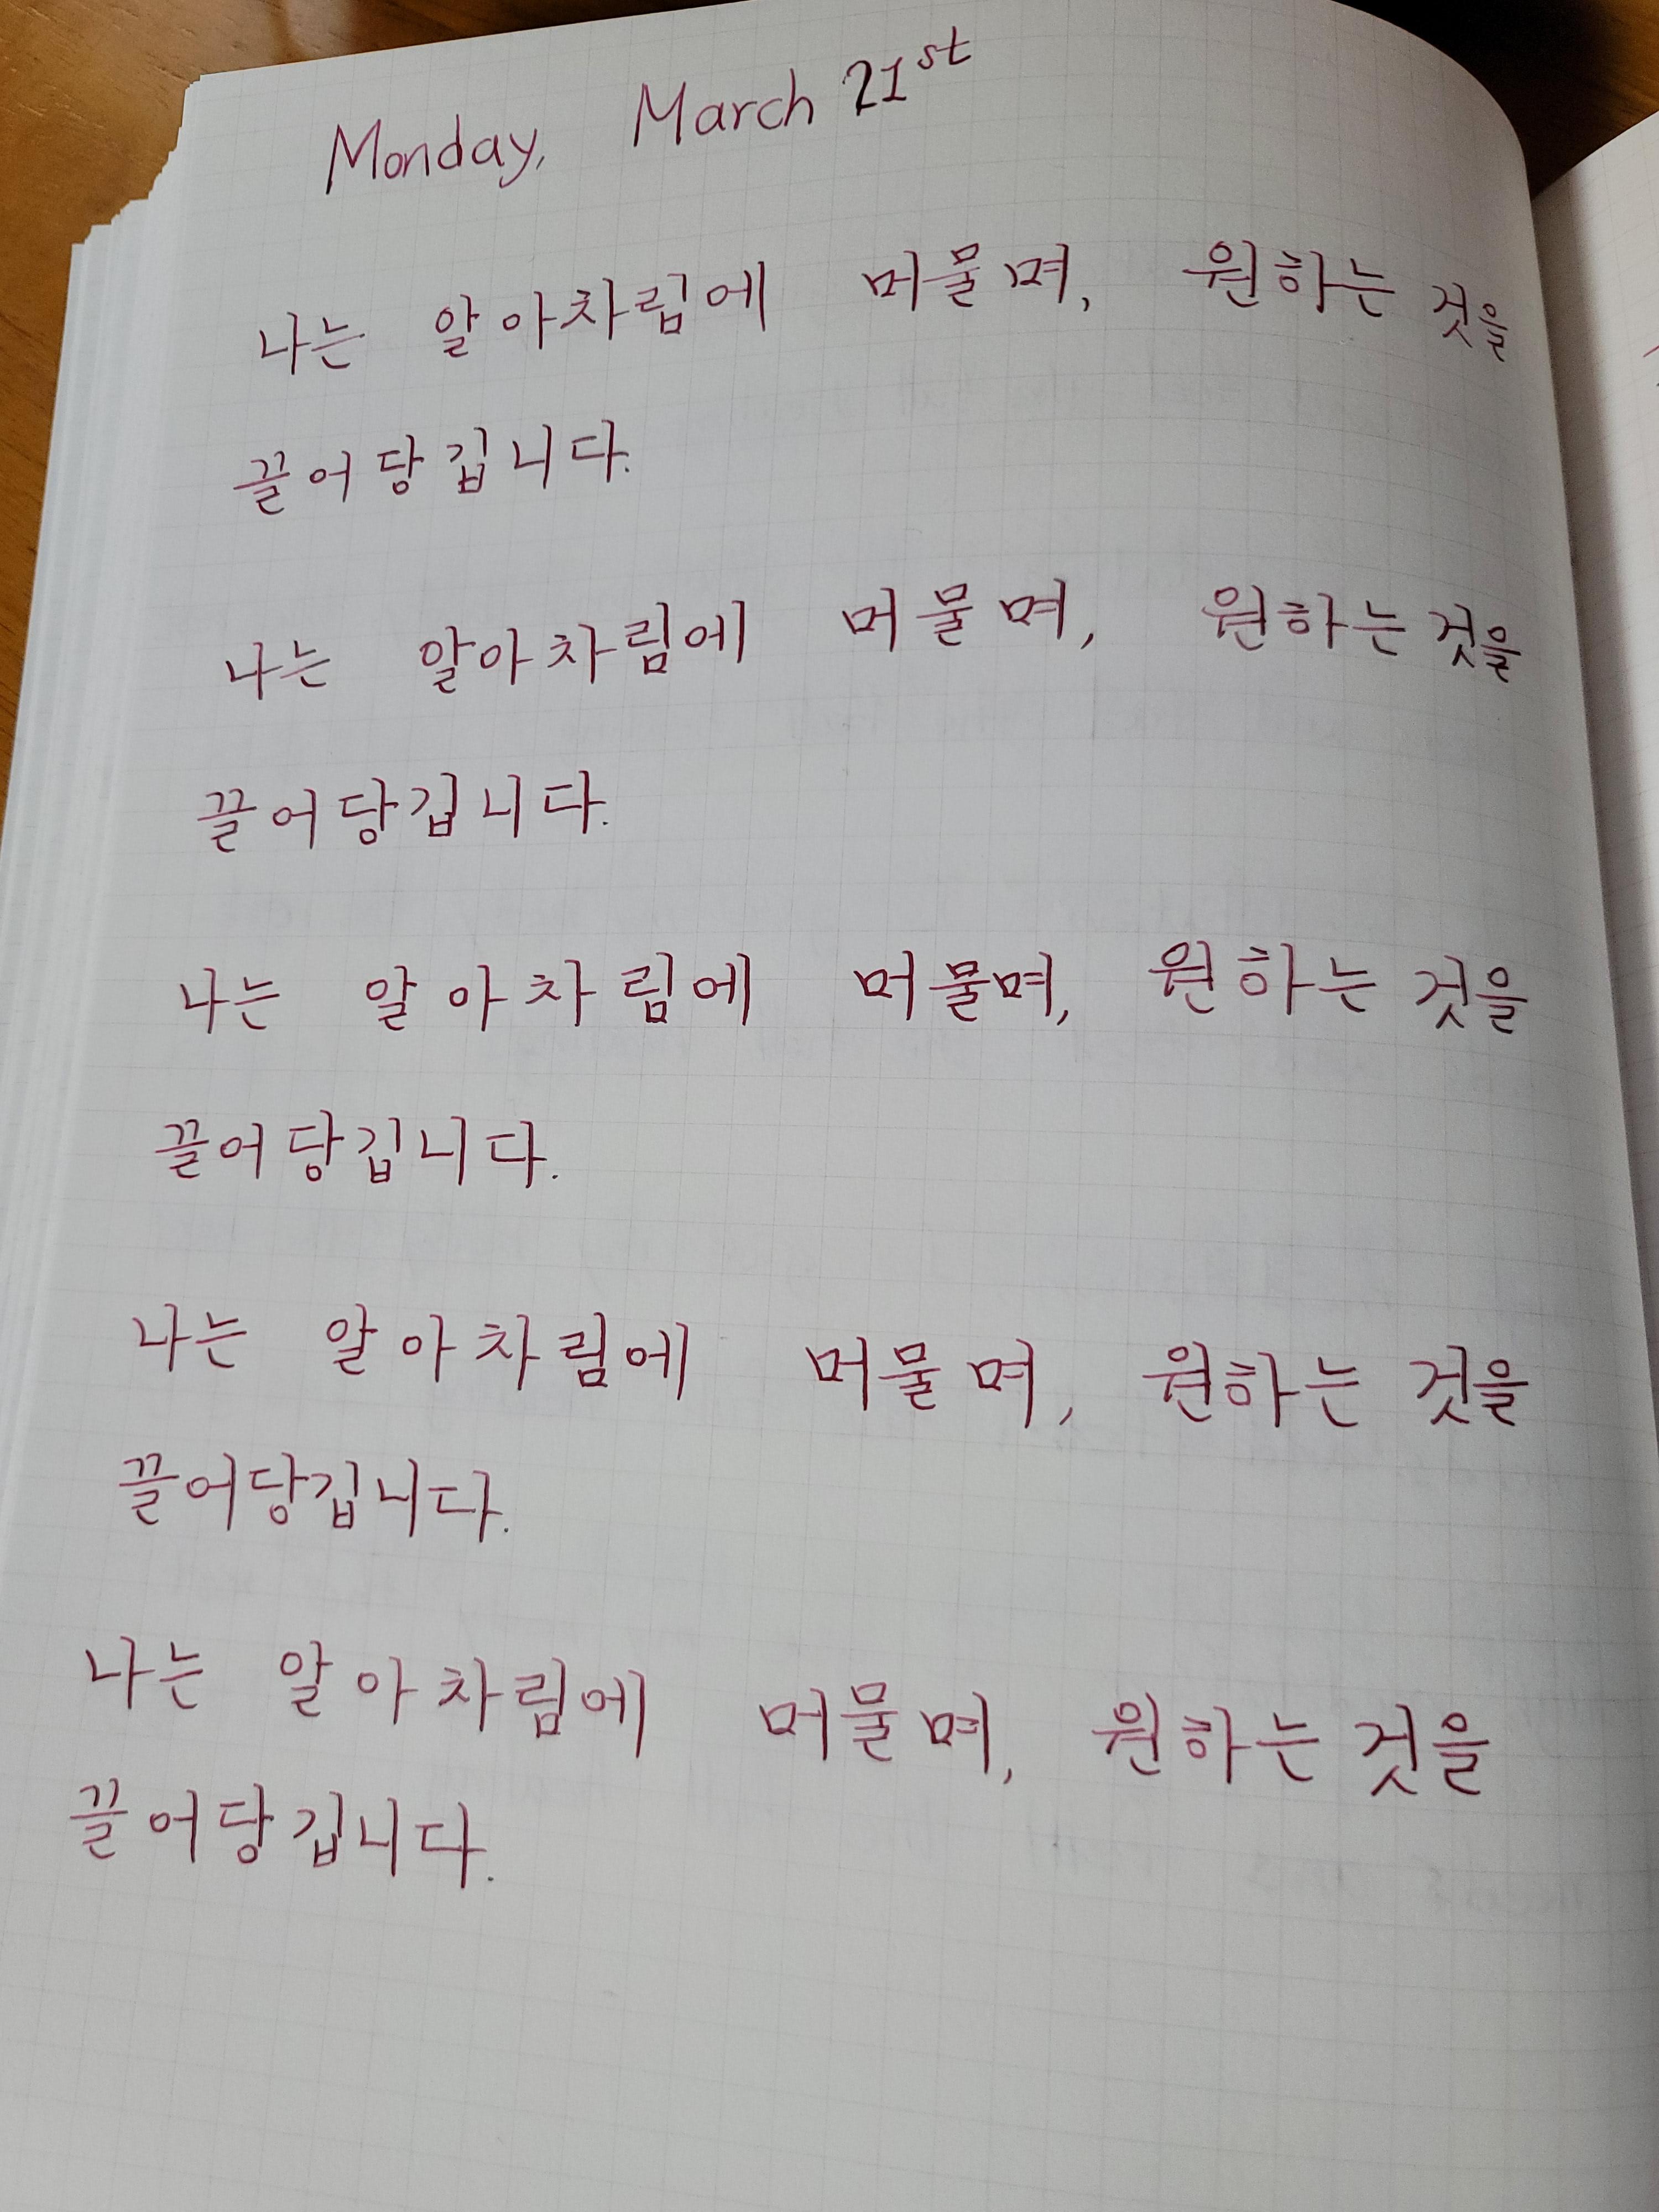 Monday, March 21st
나는 알아차림에 머물며, 원하는 것을
끌어당깁니다.
나는 알아차림에 머물며, 원하는 것을
끌어당깁니다.
나는 알아차림에 머물며, 원하는 것을
끌어당깁니다.
나는 알아차림에 머물며, 원하는 것을
끌어당깁니다.
나는 알아차림에 머물며, 원하는 것을
끌어당깁니다.